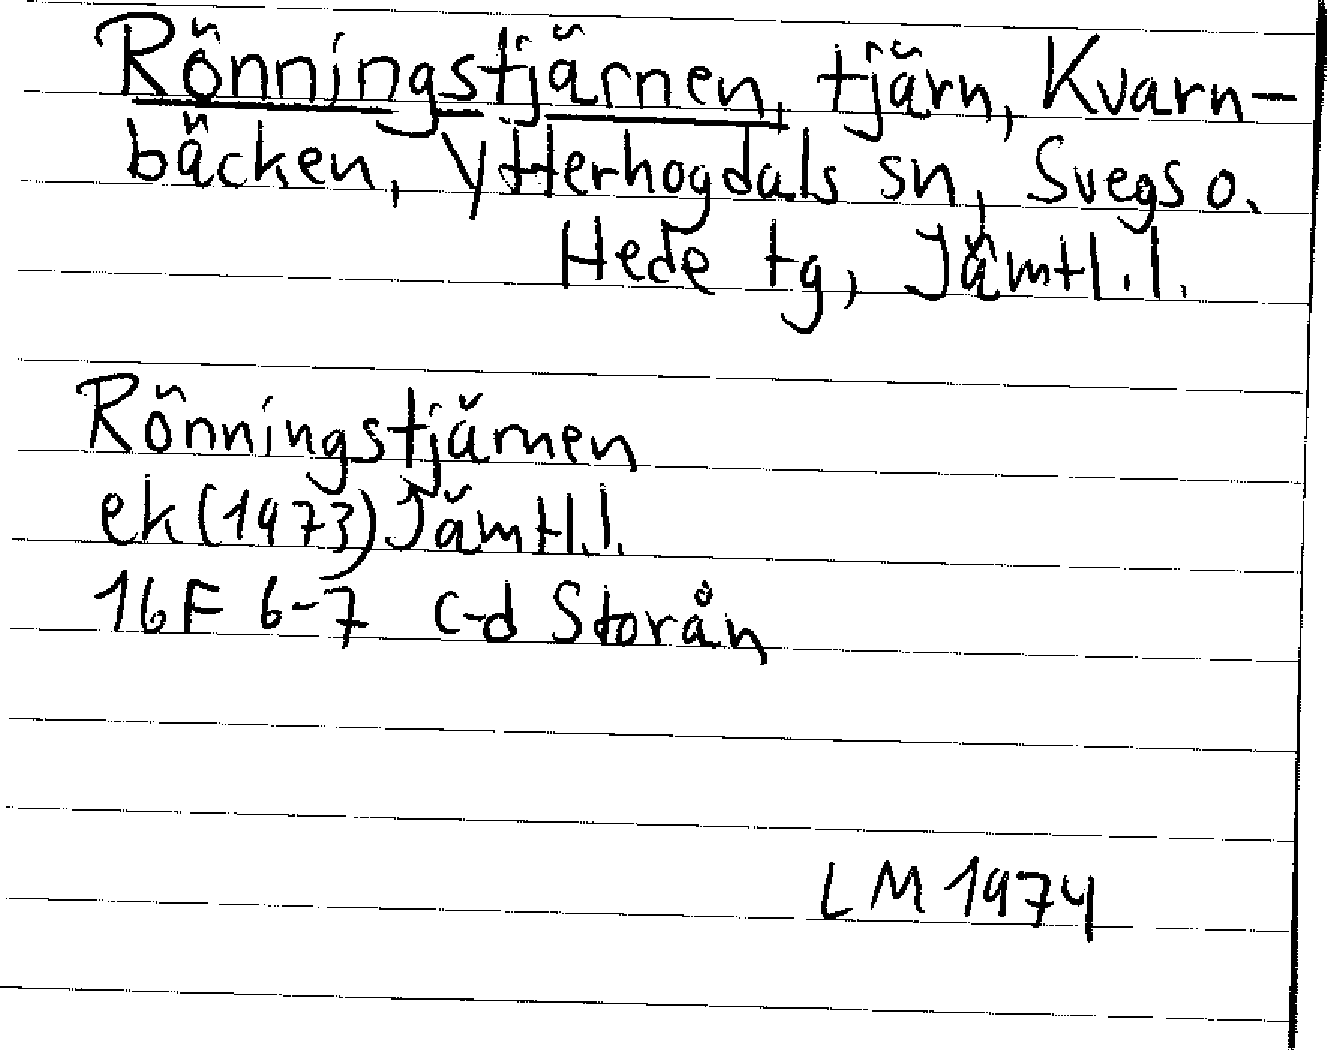 Rönningstjärnen, tjärn, Kvarn-
bäcken, Ytterhogdals sn, Svegs o.
Hede tg, Jämtl.l.
Rönningstjärnen
ek (1973) Jämtl.l.
16F 6-7 c-d Storån
LM 1974